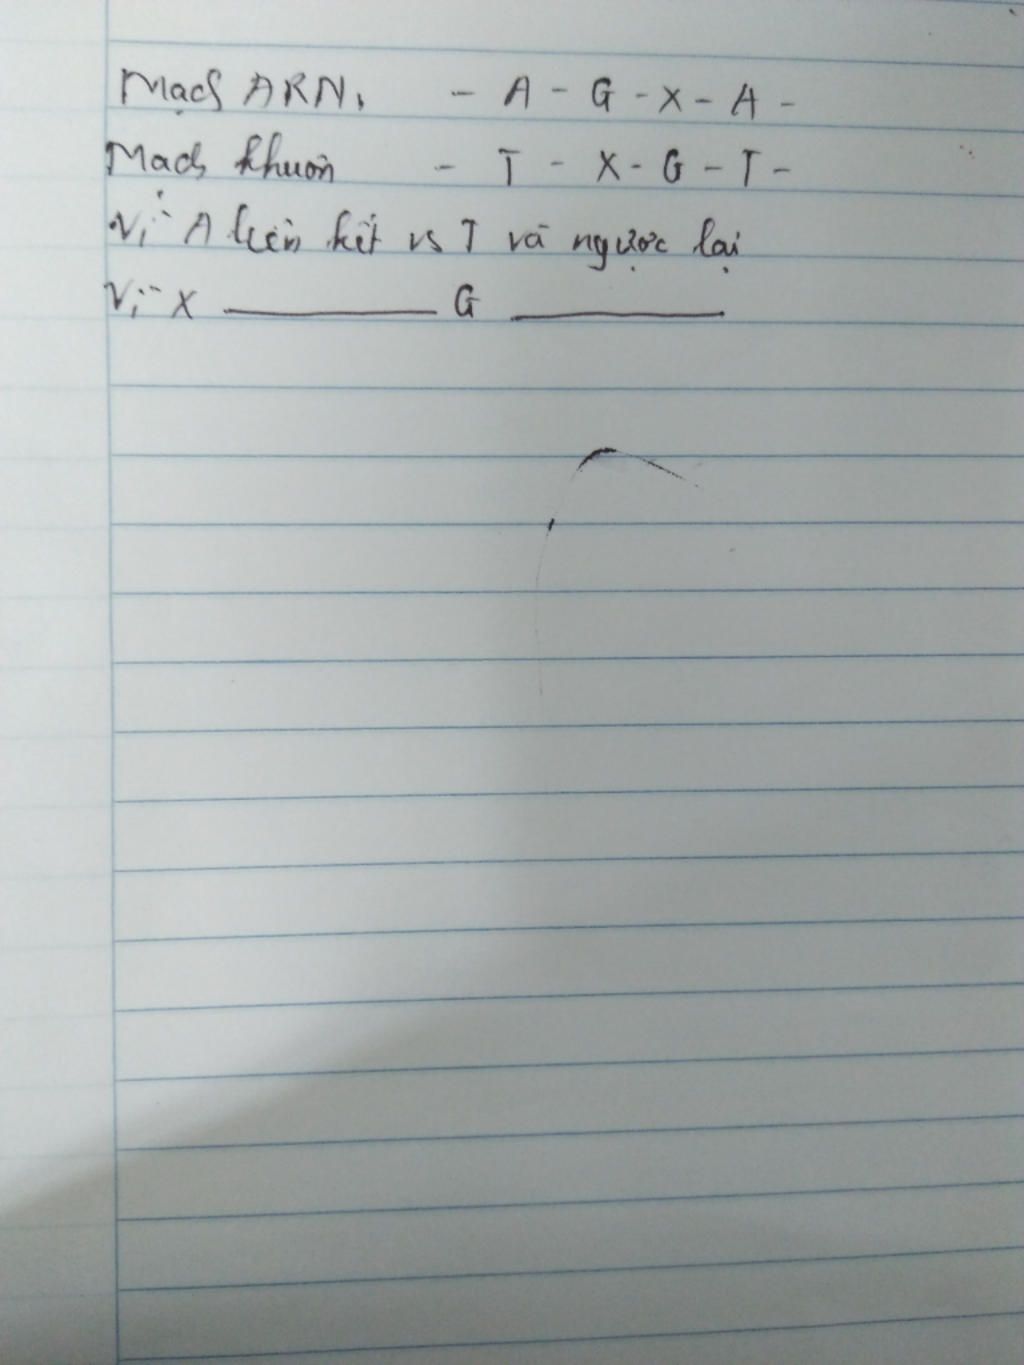 Mạch ARN, - A - G - X - A -
Mạch khuôn - T - X - G - T -
Vì A liên kết vs T và ngược lại
Vì X ———— G ————